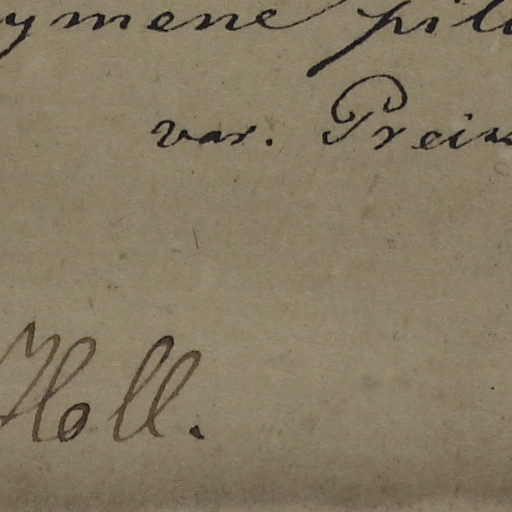 ymene pil
var. Preis
Holl.